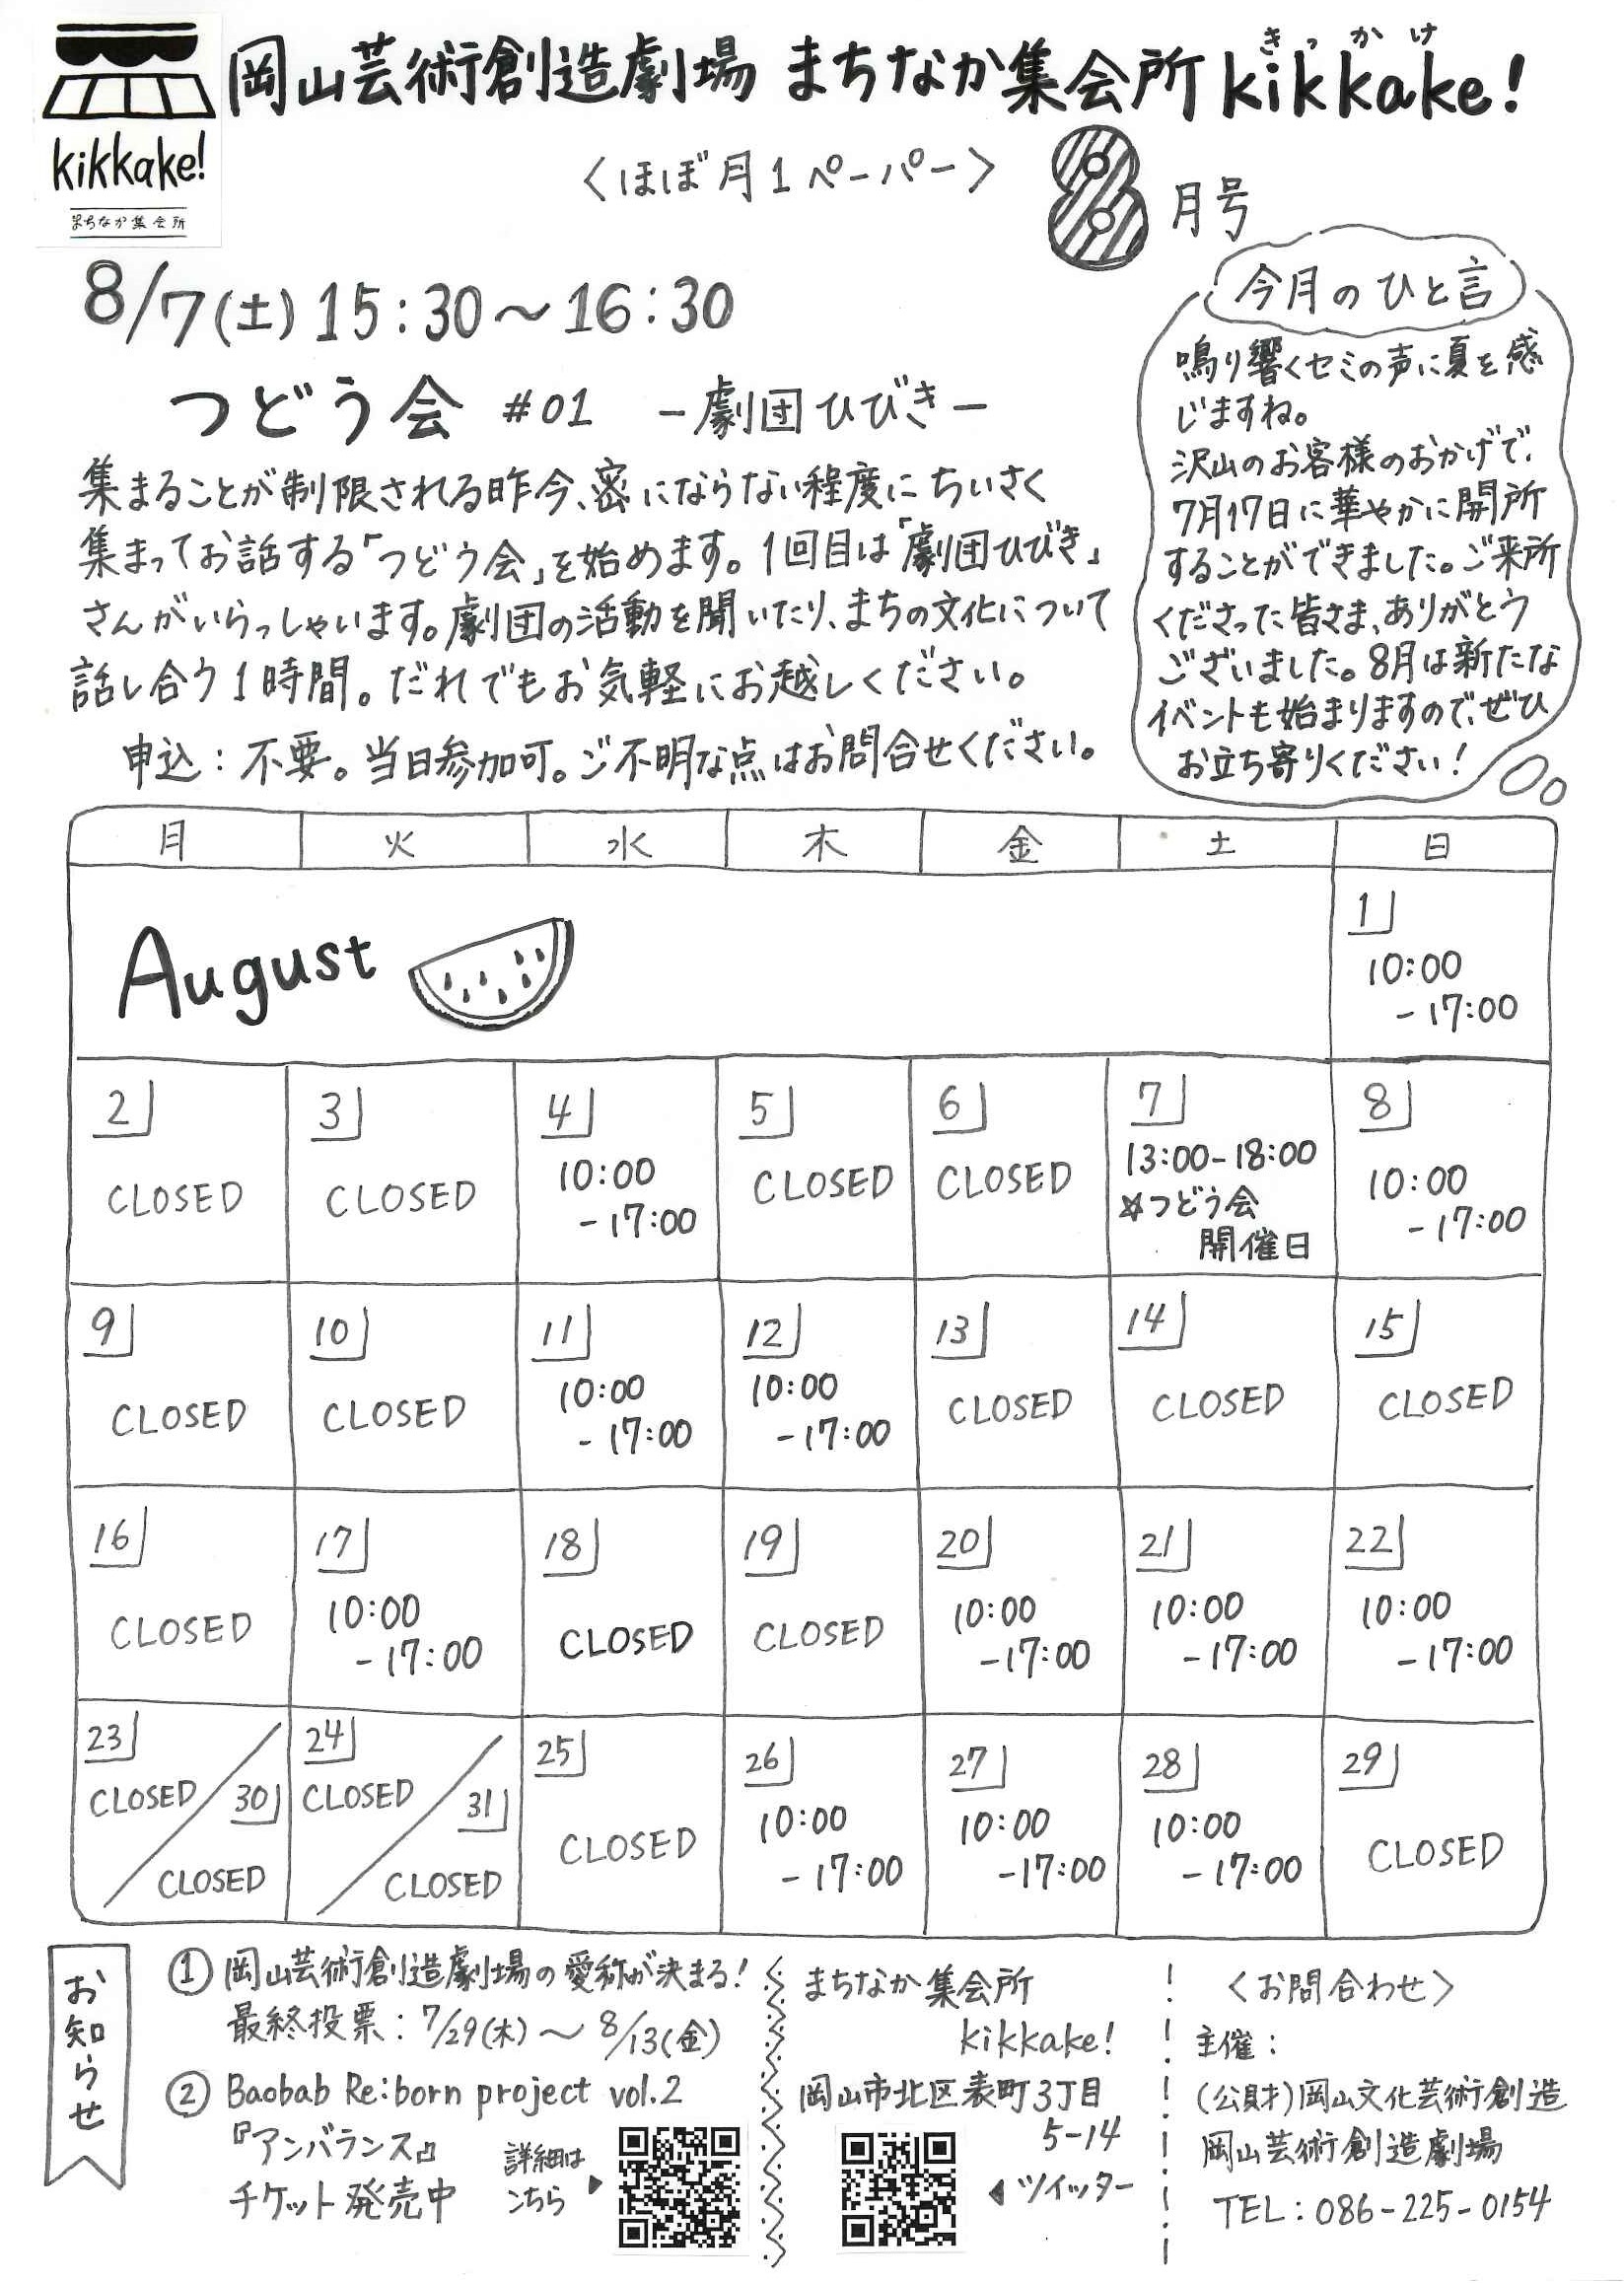 kikkake!
まちなか集会所
岡山芸術創造劇場 まちなか集会所 kikkake!
きっかけ
〈ほぼ月1ペーパー〉 8月号
8/7(土) 15:30〜16:30
つどう会 #01 −劇団ひびき−
集まることが制限される昨今、密にならない程度にちいさく
集まってお話する「つどう会」を始めます。1回目は「劇団ひびき」
さんがいらっしゃいます。劇団の活動を聞いたり、まちの文化について
話し合う1時間。だれでもお気軽にお越しください。
申込:不要。当日参加可。ご不明な点はお問合せください。
今月のひと言
鳴り響くセミの声に夏を感
じますね。
沢山のお客様のおかげで、
7月17日に華やかに開所
することができました。ご来所
くださった皆さま、ありがとう
ございました。8月は新たな
イベントも始まりますので、ぜひ
お立ち寄りください!
月 火 水 木 金 土 日
August
1
10:00
-17:00
2
CLOSED
3
CLOSED
4
10:00
-17:00
5
CLOSED
6
CLOSED
7
13:00-18:00
☆つどう会
開催日
8
10:00
-17:00
9
CLOSED
10
CLOSED
11
10:00
-17:00
12
10:00
-17:00
13
CLOSED
14
CLOSED
15
CLOSED
16
CLOSED
17
10:00
-17:00
18
CLOSED
19
CLOSED
20
10:00
-17:00
21
10:00
-17:00
22
10:00
-17:00
23
CLOSED
30
CLOSED
24
CLOSED
31
CLOSED
25
CLOSED
26
10:00
-17:00
27
10:00
-17:00
28
10:00
-17:00
29
CLOSED
お知らせ
① 岡山芸術創造劇場の愛称が決まる!
最終投票:7/29(木)〜8/13(金)
② Baobab Re:born project vol.2
『アンバランス』
チケット発売中
詳細は
こちら
まちなか集会所
kikkake!
岡山市北区表町3丁目
5-14
ツイッター
〈お問合わせ〉
主催:
(公財)岡山文化芸術創造
岡山芸術創造劇場
TEL:086-225-0154